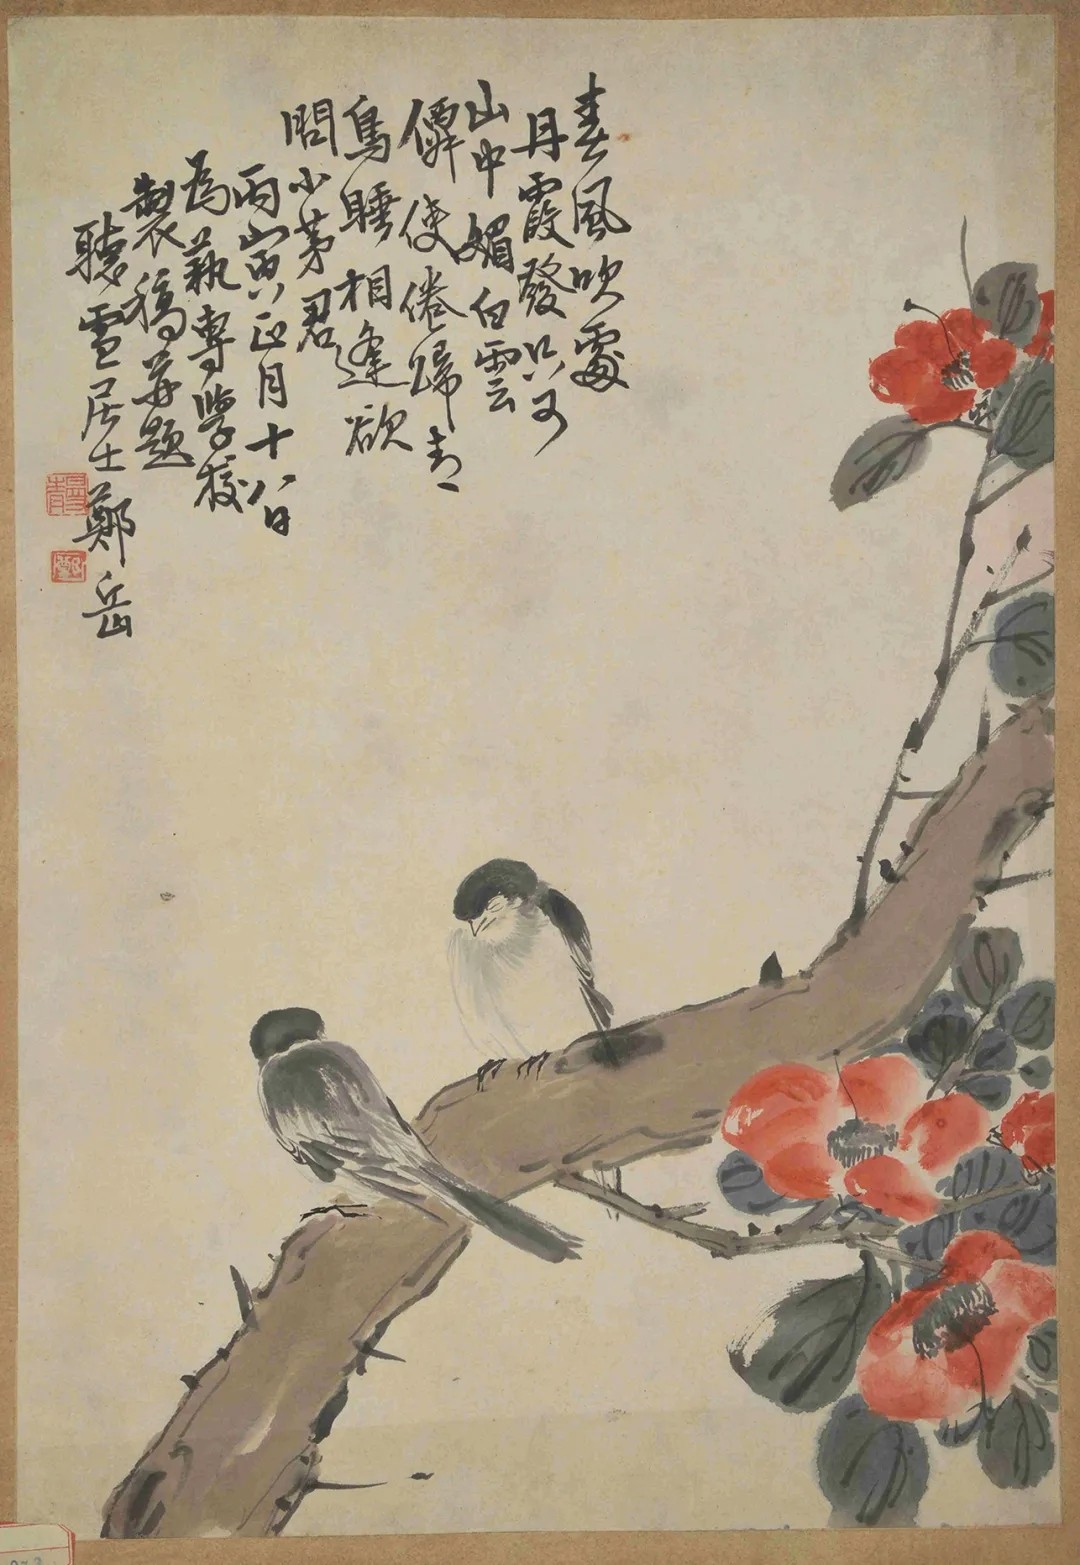 春風吹處
丹霞發只可
山中媚白雲
僊使倦歸青
鳥睡相逢欲
問小茅君
丙寅正月十八日
為蓺專學校
製稿并題
聽雪居士鄭岳
曼青